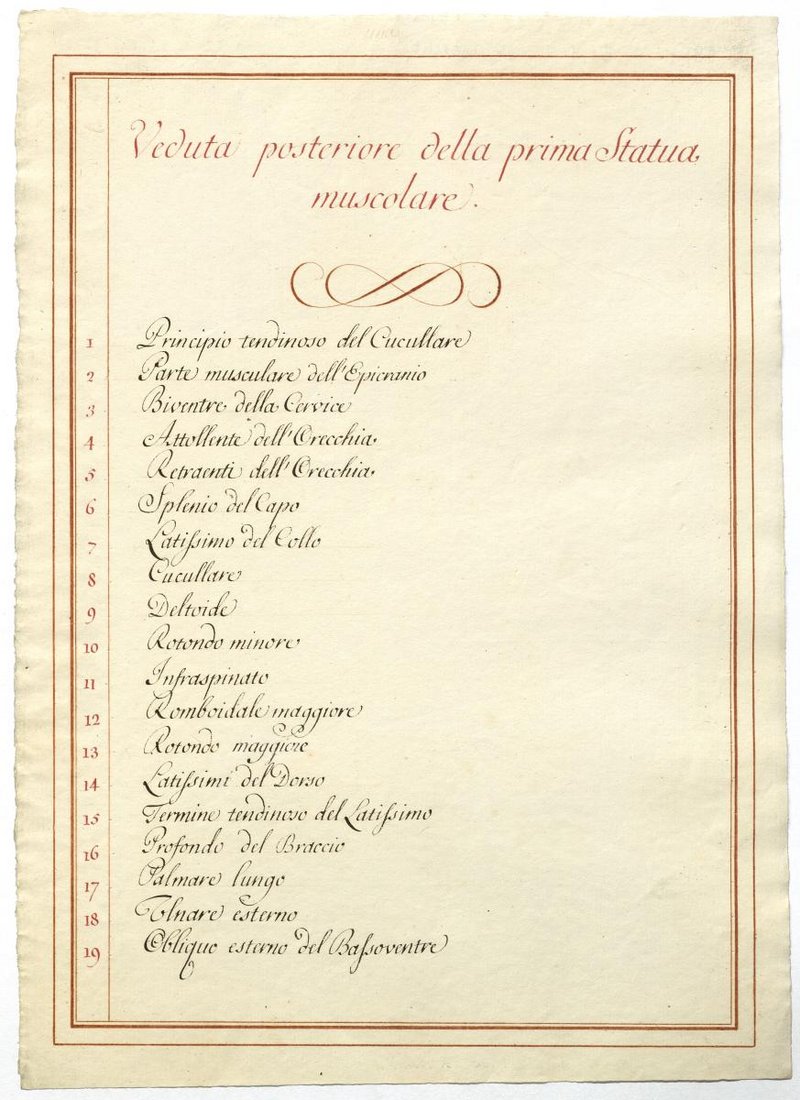 Veduta posteriore della prima Statua
muscolare.
1 Principio tendinoso del Cucullare
2 Parte musculare dell'Epicranio
3 Biventre della Cervice
4 Attollente dell'Orecchia
5 Retraenti dell'Orecchia
6 Splenio del Capo
7 Latiſsimo del Collo
8 Cucullare
9 Deltoide
10 Rotondo minore
11 Infraspinato
12 Romboidale maggiore
13 Rotondo maggiore
14 Latiſsimi del Dorso
15 Termine tendinoso del Latiſsimo
16 Profondo del Braccio
17 Palmare lungo
18 Ulnare esterno
19 Obliquo esterno del Baſsoventre